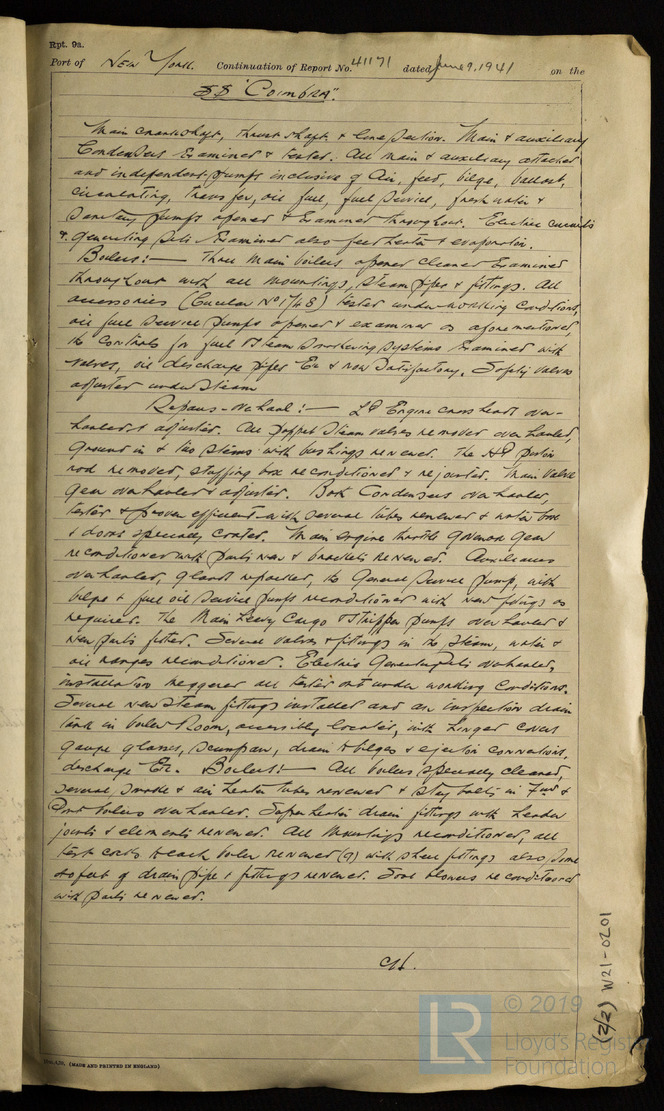 Rpt. 9a.
Port of New York. Continuation of Report No. 41171 dated June 9, 1941 on the
SS "Coimbra".
Main crankshaft, thrust shaft & line section. Main & auxiliary
Condensers Examined & tested. All main & auxiliary attached
and independent pumps inclusive of Air, feed, bilge, ballast,
circulating, transfer, oil fuel, fuel service, fresh water &
Sanitary pumps opened & Examined throughout. Electric circuits
& generating sets Examined also feed heater & evaporator.
Boilers:— Three Main boilers opened cleaned Examined
throughout with all mountings, steam pipes & fittings. All
accessories (Circular No 1748) tested under working conditions,
oil fuel service pumps opened & examined as aforementioned,
the controls for fuel & steam smothering systems Examined with
valves, oil discharge pipes Etc & now satisfactory. Safety valves
adjusted under steam
Repairs - Overhaul:— LP Engine crosshead over-
hauled & adjusted. All poppet steam valves removed overhauled,
ground in & two stems with bushings renewed. The HP piston
rod removed, stuffing box reconditioned & rejointed. Main valve
gear overhauled & adjusted. Both Condensers overhauled,
tested & proven efficient with several tubes renewed & water box
& doors specially coated. Main engine throttle governor gear
reconditioned with parts new & brackets renewed. Auxiliaries
overhauled, glands repacked, the General Service pump, with
bilge & fuel oil service pumps reconditioned with new fittings as
required. The Main Heavy Cargo & stripper pumps overhauled &
new parts fitted. Several valves & fittings in the steam, water &
oil ranges reconditioned. Electric Generating sets overhauled,
installation meggered all tested out under working conditions.
Several new steam fittings installed and an inspection drain
tank in boiler Room, accessibly located, with hinged covers
gauge glasses, scumpan, drain to bilges & ejector connections,
discharge Etc. Boilers:— All boilers specially cleaned,
several smoke & air heater tubes renewed & stay bolts in Fwd &
Port boilers overhauled. Superheater drain fittings with header
joints & elements renewed. All Mountings reconditioned, all
test cocks to each boiler renewed (9) with steel fittings also, some
feet of drain pipe & fittings renewed. Soot blowers reconditioned
with parts renewed.
(2/2) W21-0201
LR
© 2019
Lloyd's Register
Foundation
(MADE AND PRINTED IN ENGLAND)